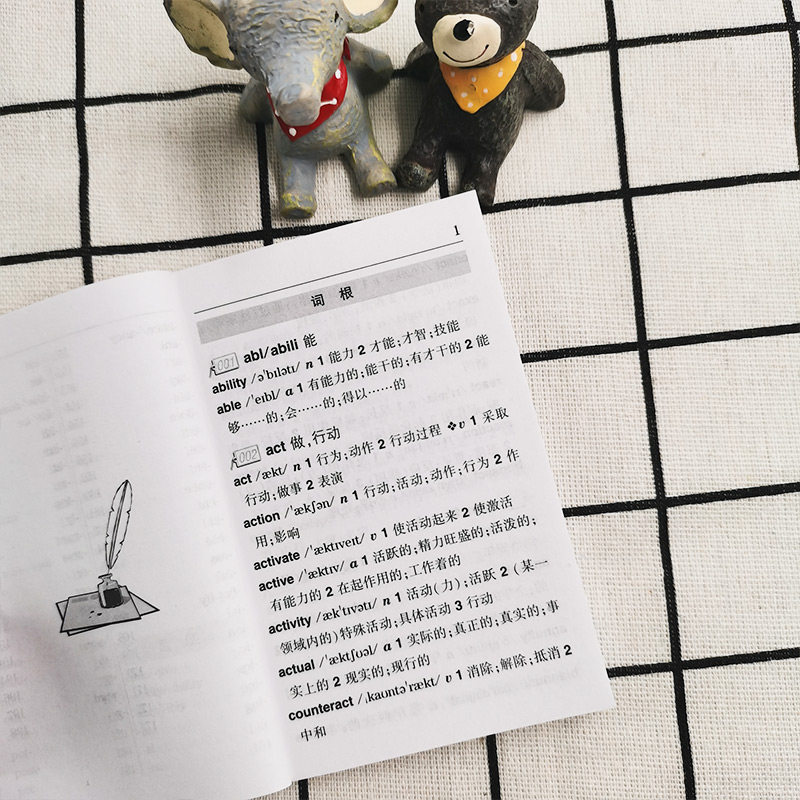 1
词 根
001 abl/abili 能
ability /əˈbɪlətɪ/ n 1 能力 2 才能;才智;技能
able /ˈeɪbl/ a 1 有能力的;能干的;有才干的 2 能
够……的;会……的;得以……的
002 act 做,行动
act /ækt/ n 1 行为;动作 2 行动过程 ❖v 1 采取
行动;做事 2 表演
action /ˈækʃən/ n 1 行动;活动;动作;行为 2 作
用;影响
activate /ˈæktɪveɪt/ v 1 使活动起来 2 使激活
active /ˈæktɪv/ a 1 活跃的;精力旺盛的;活泼的;
有能力的 2 在起作用的;工作着的
activity /ækˈtɪvətɪ/ n 1 活动(力);活跃 2 (某一
领域内的)特殊活动;具体活动 3 行动
actual /ˈæktʃʊəl/ a 1 实际的;真正的;真实的;事
实上的 2 现实的;现行的
counteract /ˌkaʊntəˈrækt/ v 1 消除;解除;抵消 2
中和